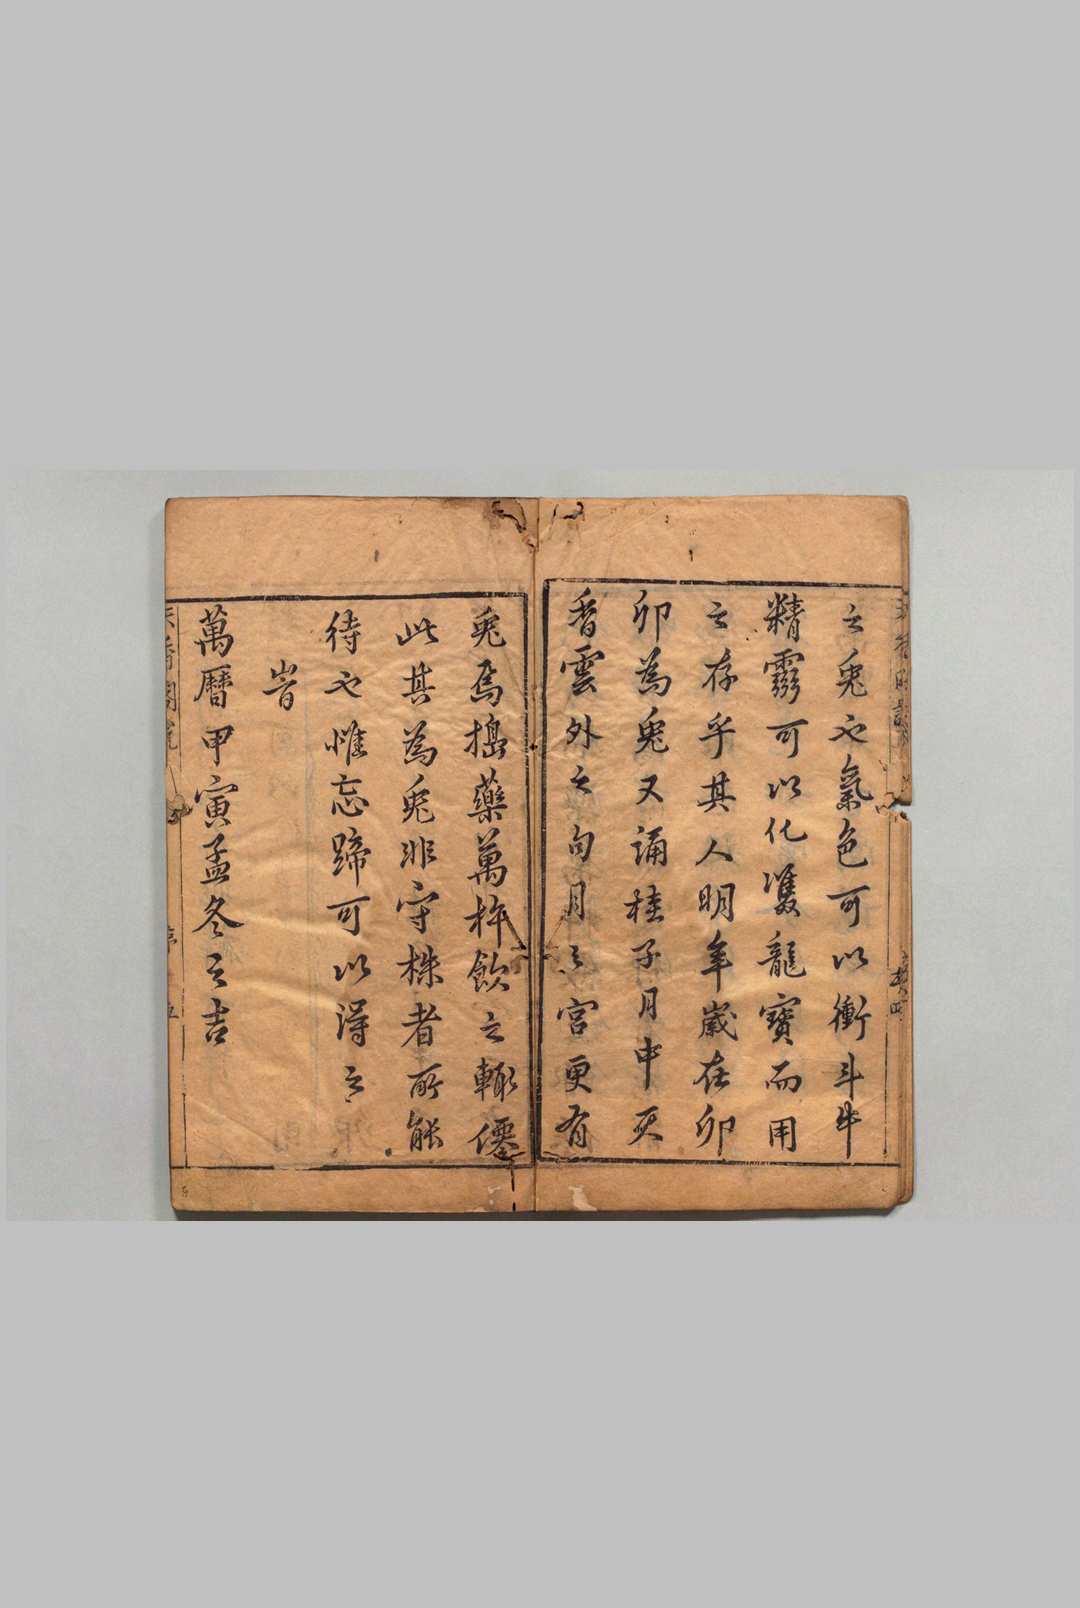 之兎也氣色可以衝斗牛
精靈可以化雙龍寶而用
之存乎其人明年歲在卯
卯為兎又誦桂子月中灵
香雲外之句月之宮更有
兎焉搗藥萬杵飲之輒僊
此其為兎非守株者所能
待也惟忘蹄可以得之
旹
萬曆甲寅孟冬之吉